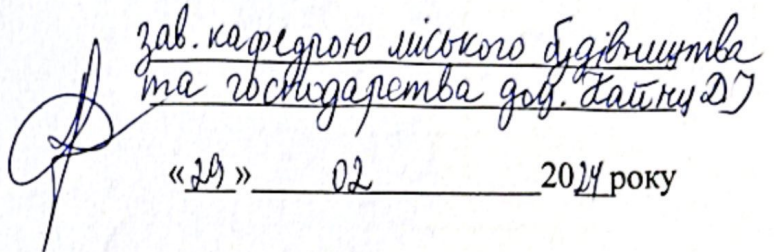 зав. кафедрою міського будівництва
та господарства доц.
«29» 02 2024 року